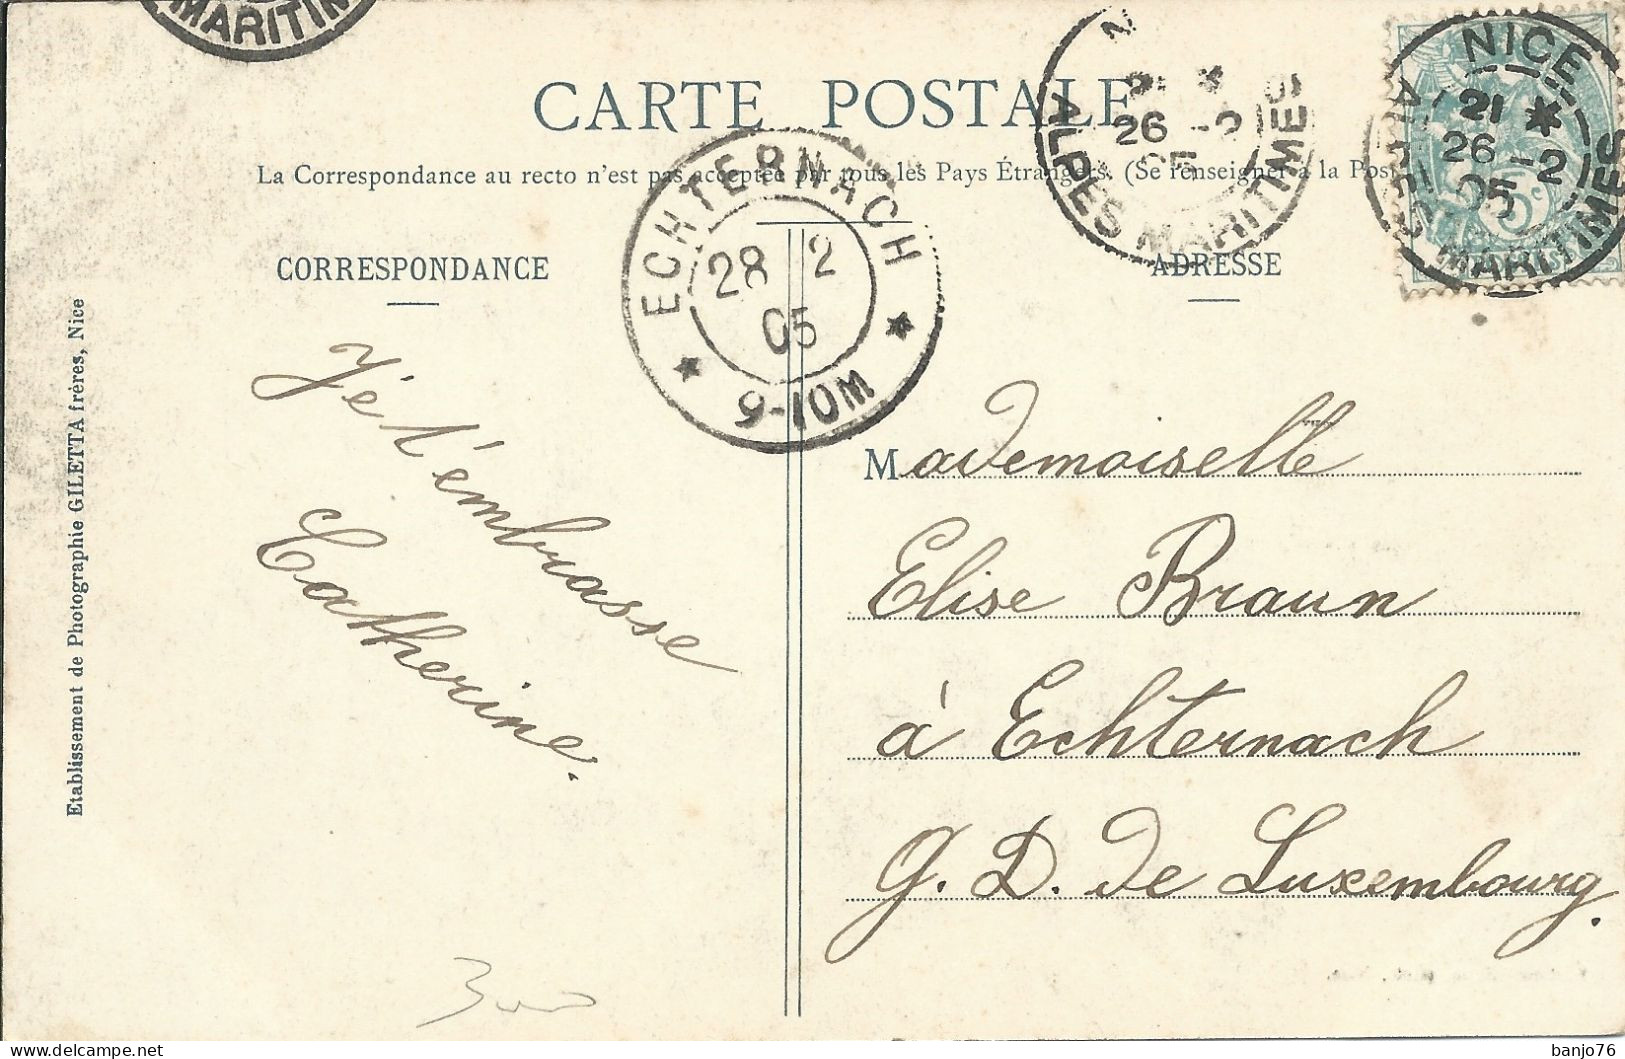 MARITIM
CARTE POSTALE
La Correspondance au recto n'est pas acceptée par tous les Pays Étrangers. (Se renseigner à la Post
NICE
21 *
26 -2
05
ALPES MARITIMES
26 -2
ALPES MARITIMES
ECHTERNACH
28 2
05
9-10M
CORRESPONDANCE
ADRESSE
Etablissement de Photographie GILETTA frères, Nice
Je t'embrasse
Catherine.
Mademoiselle
Elise Braun
à Echternach
G. D. de Luxembourg.
banjo76